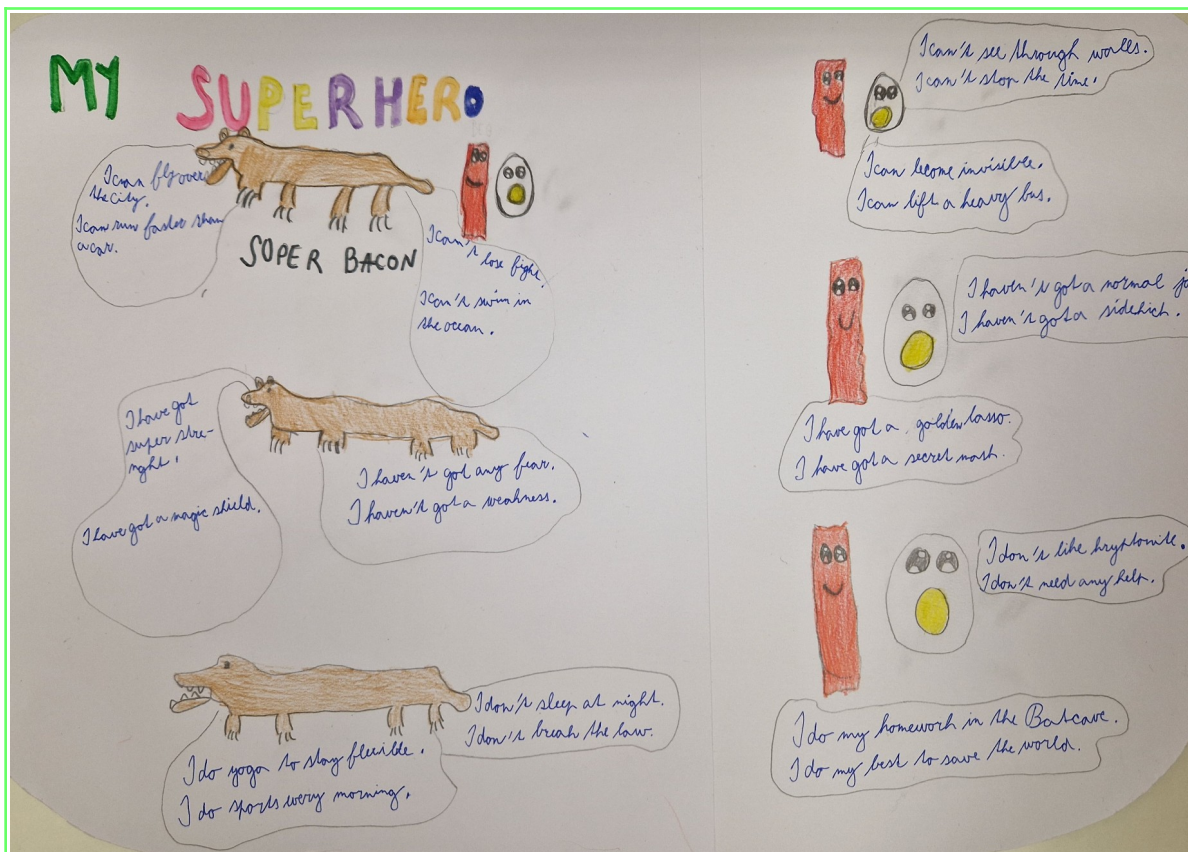 MY SUPERHERO
I can fly over
the city.
I can run faster than
a car.
SUPER BACON
I can't lose fight.
I can't swim in
the ocean.
I have got
super stre-
nght.
I have got a magic shield.
I haven't got any fear.
I haven't got a weakness.
I don't sleep at night.
I don't break the law.
I do yoga to stay flexible.
I do sports every morning.
I can't see through walls.
I can't stop the time.
I can become invisible.
I can lift a heavy bus.
I haven't got a normal
I haven't got a sidekick.
I have got a golden lasso.
I have got a secret mask.
I don't like kryptonite.
I don't need any help.
I do my homework in the Batcave.
I do my best to save the world.